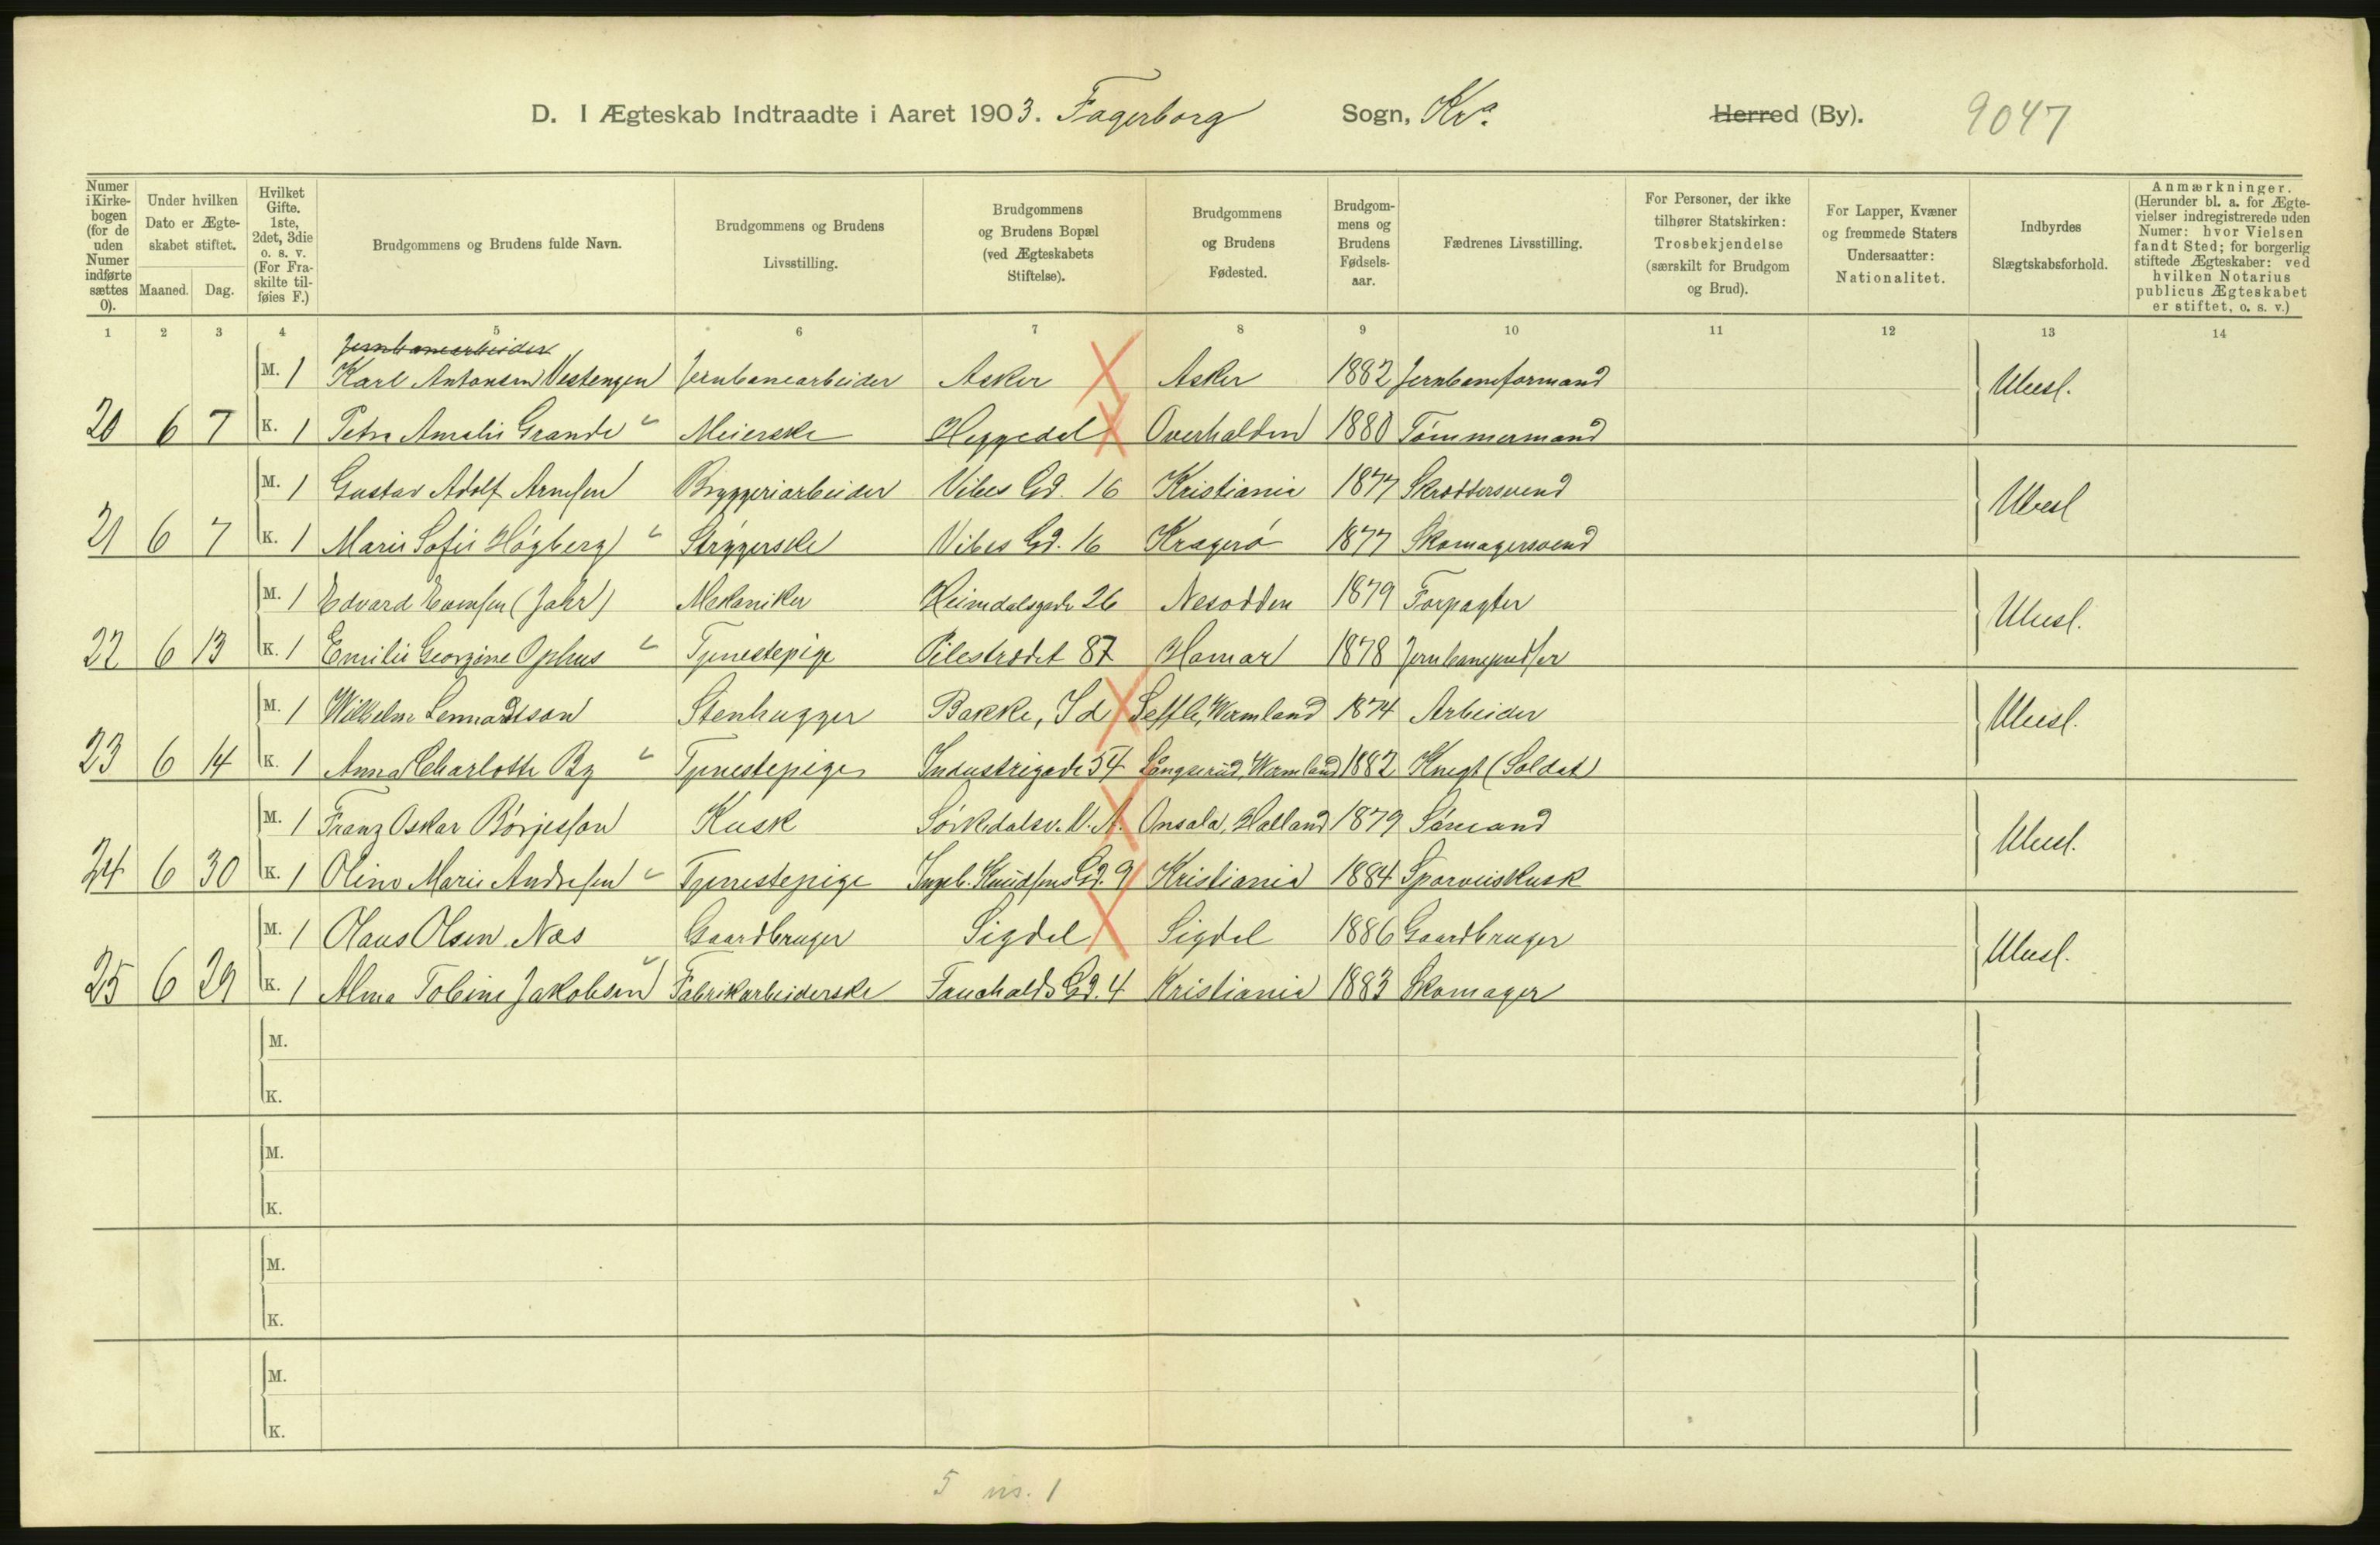 D. I Ægteskab Indtraadte i Aaret 1903. Fagerborg Sogn, Kra. Herred (By). 9047
Numer i Kirkebogen (for de uden Numer indførte sættes 0).
Under hvilken Dato er Ægteskabet stiftet.
Maaned. Dag.
Hvilket Gifte. 1ste, 2det, 3die o. s. v. (For Fraskilte tilføies F.)
Brudgommens og Brudens fulde Navn.
Brudgommens og Brudens Livsstilling.
Brudgommens og Brudens Bopæl (ved Ægteskabets Stiftelse).
Brudgommens og Brudens Fødested.
Brudgommens og Brudens Fødselsaar.
Fædrenes Livsstilling.
For Personer, der ikke tilhører Statskirken: Trosbekjendelse (særskilt for Brudgom og Brud).
For Lapper, Kvæner og fremmede Staters Undersaatter: Nationalitet.
Indbyrdes Slægtskabsforhold.
Anmærkninger. (Herunder bl. a. for Ægtevielser indregistrerede uden Numer: hvor Vielsen fandt Sted; for borgerlig stiftede Ægteskaber: ved hvilken Notarius publicus Ægteskabet er stiftet, o. s. v.)
1 2 3 4 5 6 7 8 9 10 11 12 13 14
Jernbanearbeider
M. 1 Karl Antonsen Vestengen Jernbanearbeider Asker Asker 1882 Jernbaneformand Ubesl.
20 6 7 K. 1 Petra Amalie Grande Meierske Heggedal Overhalden 1880 Tømmermand
M. 1 Gustav Adolf Arnesen Bryggeriarbeider Vibes Gd. 16 Kristiania 1877 Skræddersvend Ubesl
21 6 7 K. 1 Marie Sofie Høgberg Strygerske Vibes Gd. 16 Kragerø 1877 Skomagersvend
M. 1 Edvard Evensen (Jahr) Mekaniker Heimdalsgade 26 Nesodden 1879 Forpagter Ubesl.
22 6 13 K. 1 Emilie Georgine Ophus Tjenestepige Pilestrædet 87 Hamar 1878
M. 1 Wilhelm Lennartson Stenhugger Bakke, Id Seffle, Wermland 1874 Arbeider Ubesl.
23 6 14 K. 1 Anna Charlotte By Tjenestepige Industrigade 54 Långserud, Wermland 1882 Knegt (Soldat)
M. 1 Franz Oskar Börjesson Kusk Sørkedalsv. V. A. Onsala, Halland 1879 Sømand Ubesl.
24 6 30 K. 1 Oline Marie Andresen Tjenestepige Ingeb. Knudsens Gd. 9 Kristiania 1884 Sporveiskusk
M. 1 Olaus Olsen Næs Gaardbruger Sigdal Sigdal 1886 Gaardbruger Ubesl.
25 6 29 K. 1 Alma Tobine Jakobsen Fabrikarbeiderske Fauchalds Gd. 4 Kristiania 1883 Skomager
M.
K.
M.
K.
M.
K.
M.
K.
5 1